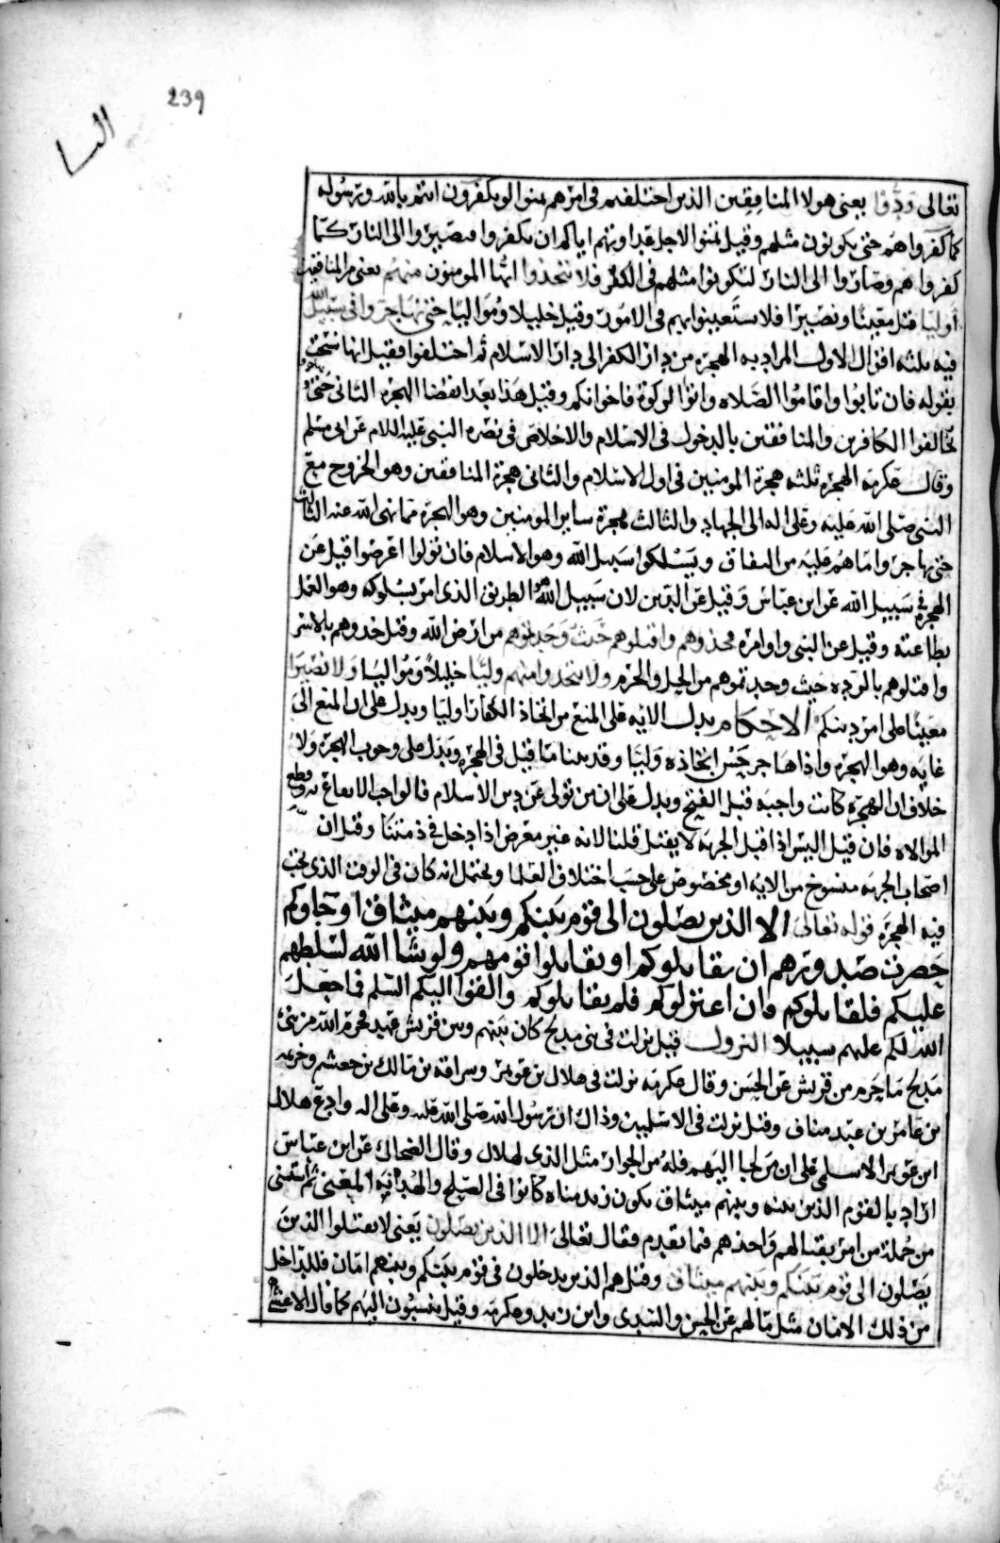 239
النسا
تعالى ودوا يعنى هولا المنافقين الذين اختلفتم فى امرهم تمنوا لو تكفرون انتم بالله ورسوله
كما كفروا هم حتى يكونون مثلهم وقيل تمنوا لاجل عداوتهم اياكم ان تكفروا فتصيروا الى النار كما
كفروا هم وصاروا الى النار لتكونوا مثلهم فى الكفر فلا تتخذوا ايها المومنون منهم يعنى من المنافقين
اوليا قيل معينا ونصيرا فلا تستعينوا بهم فى الامور وقيل خليلا ومواليا حتى يهاجروا فى سبيل الله
فيه ثلثه اقوال الاول المراد به الهجرة من دار الكفر الى دار الاسلام ثم اختلفوا فقيل انها نسخت
بقوله فان تابوا واقاموا الصلاه واتوا الزكوة فاخوانكم وقيل هذا بعد انقضا الهجره الثانى حتى
يخالفوا الكافرين والمنافقين بالدخول فى الاسلام والاخلاص فى نصره النبى عليه السلام عن ابى مسلم
وقال عكرمه الهجره ثلثه هجرة المومنين فى اول الاسلام والثانى هجرة المنافقين وهو الخروج مع
النبى صلى الله عليه وعلى اله الى الجهاد والثالث هجرة ساير المومنين وهو الهجره مما نهى الله عنه الثالث
حتى يهاجروا ما هم عليه من النفاق ويسلكوا سبيل الله وهو الاسلام فان تولوا اعرضوا قيل عن
الهجره فى سبيل الله عن ابن عباس وقيل عن الدين لان سبيل الله هو الطريق الذى امر بسلوكه وهو العمل
بطاعته وقيل عن النبى واوامره فخذوهم واقتلوهم حيث وجدتموهم من ارض الله وقيل خدوهم بالاسر
واقتلوهم بالرده حيث وجدتموهم من الحل والحرم ولا تتخذوا منهم وليا خليلا ومواليا ولا نصيرا
معينا على امر دينكم الاحكام يدل الايه على المنع من اتخاذ الكفار اوليا ويدل على ان المنع الى
غايه وهو الهجره واذا هاجر حسن اتخاذه وليا وقد بينا ما قيل فى الهجره ويدل على وجوب الهجره ولا
خلاف ان الهجره كانت واجبه قبل الفتح ويدل على ان من تولى عن دين الاسلام فالواجب الايقاع به وقطع
الموالاه فان قيل اليس اذا قبل الجزيه لا يقتل قلنا لانه غير معرض اذا دخل فى ذمتنا وقيل ان
اصحاب الجزيه منسوخ من الايه او مخصوص على حسب اختلاف العلما ويحتمل انه كان فى الوقت الذى تجب
فيه الهجره قوله تعالى الا الذين يصلون الى قوم بينكم وبينهم ميثاق او جاوكم
حصرت صدورهم ان يقاتلوكم او يقاتلوا قومهم ولو شا الله لسلطهم
عليكم فلقاتلوكم فان اعتزلوكم فلم يقاتلوكم والقوا اليكم السلم فما جعل
الله لكم عليهم سبيلا النزول قيل نزلت فى بنى مدلج كان بينهم وبين قريش عهد فحرم الله من بنى
مدلج ما حرم من قريش عن الحسن وقال عكرمه نزلت فى هلال بن عويمر وسراقه بن مالك بن جعشم وخزيمه
بن عامر بن عبد مناف وقيل نزلت فى الاسلميين وذاك ان رسول الله صلى الله عليه وعلى اله وادع هلال
ابن عويمر الاسلمى على ان من لجا اليهم فله من الجوار مثل الذى لهلال وقال الضحاك عن ابن عباس
اراد بالقوم الذين بينه وبينهم ميثاق بكون زيد مناه كانوا فى الصلح والهدنه المعنى ثم استثنى
من جملة من امر بقتالهم واخذهم فيما تقدم فقال تعالى الا الذين يصلون يعنى لا تقتلوا الذين
يصلون الى قوم بينكم وبينهم ميثاق وقيل هم الذين يدخلون فى قوم بينكم وبينهم امان فللداخل
من ذلك الامان مثل ما لهم عن الحسن والسدى وابن زيد وعكرمه وقيل ينتسبون اليهم كما قال الاعشى